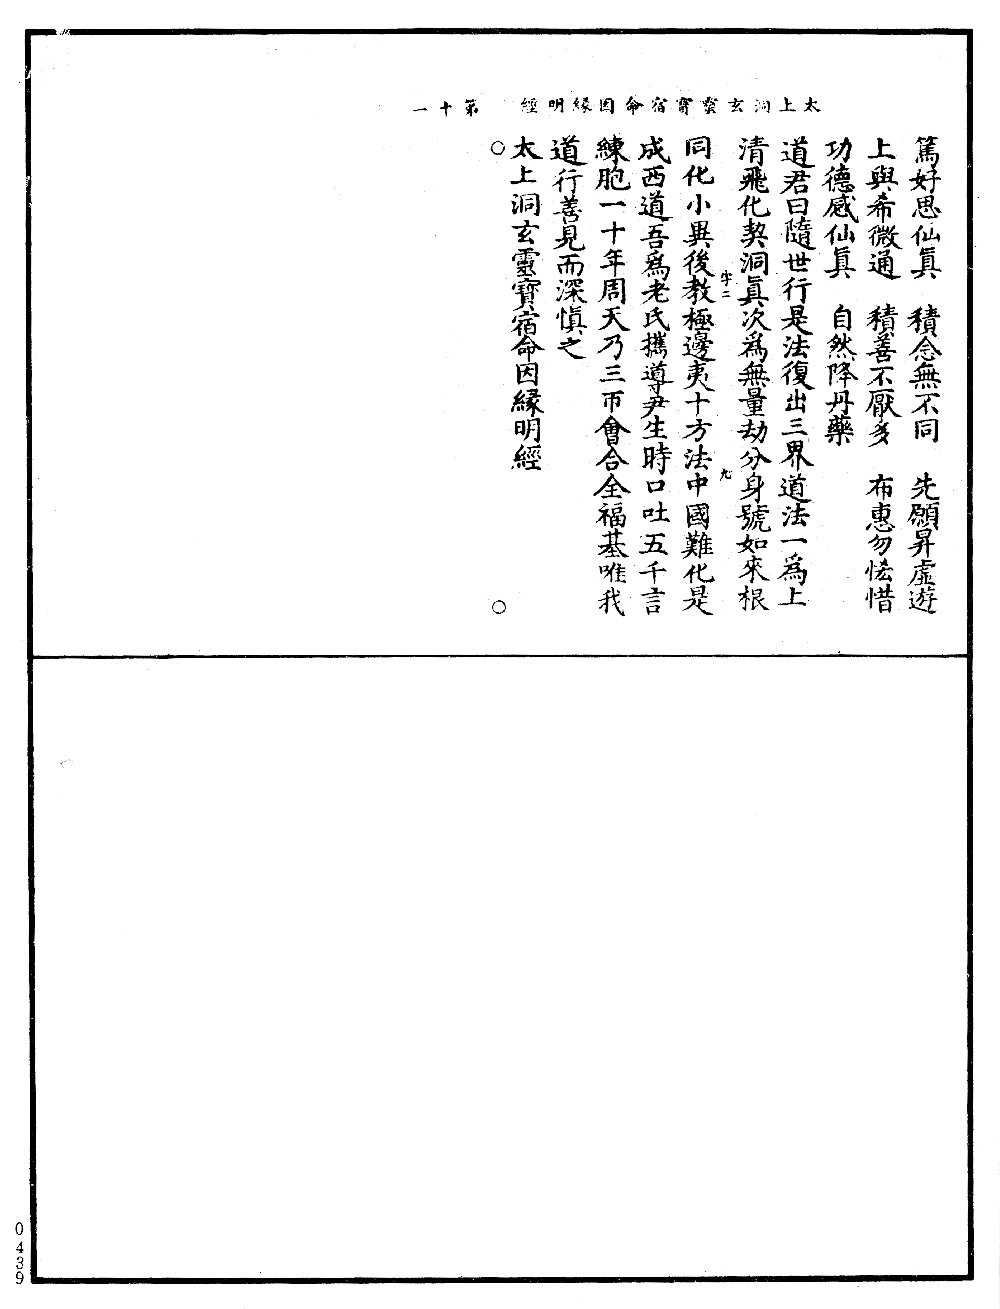 太上洞玄靈寶宿命因緣明經　第十一
篤好思仙眞　積念無不同　先願昇虛遊
上與希微通　積善不厭多　布惠勿悋惜
功德感仙眞　自然降丹藥
道君曰隨世行是法復出三界道法一爲上
清飛化契洞眞次爲無量劫分身號如來根
字二　九
同化小異後教極邊夷十方法中國難化是
成西道吾爲老氏攜導尹生時口吐五千言
練胞一十年周天乃三帀會合全福基唯我
道行善見而深愼之
太上洞玄靈寶宿命因緣明經
0439